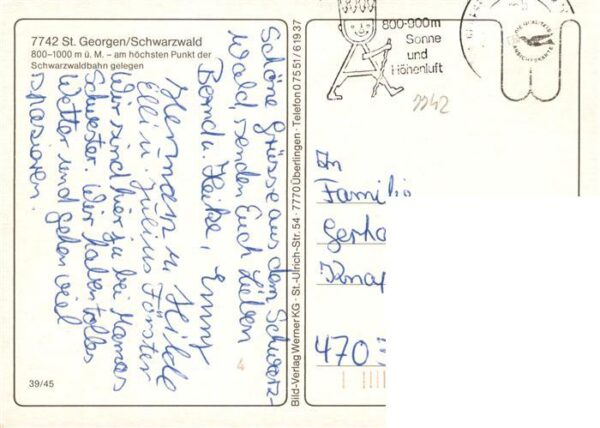 7742 St. Georgen/Schwarzwald
800-1000 m ü. M. – am höchsten Punkt der
Schwarzwaldbahn gelegen
Schöne Grüsse aus dem Schwarz-
wald, senden Euch Lieben
Bernd u. Heike, Emmy
Hermann u. Hilde
Elli u. Julius Förster
Wir sind hier ja bei Mamas
Schwester. Wir haben tolles
Wetter und gehen viel
spazieren.
39/45
4
Bild-Verlag Werner KG · St.-Ulrich-Str. 54 · 7770 Überlingen · Telefon 0 75 51 / 6 19 37
800-900m
Sonne
und
Höhenluft
7742
An
Famili
Gerha
Knap
470